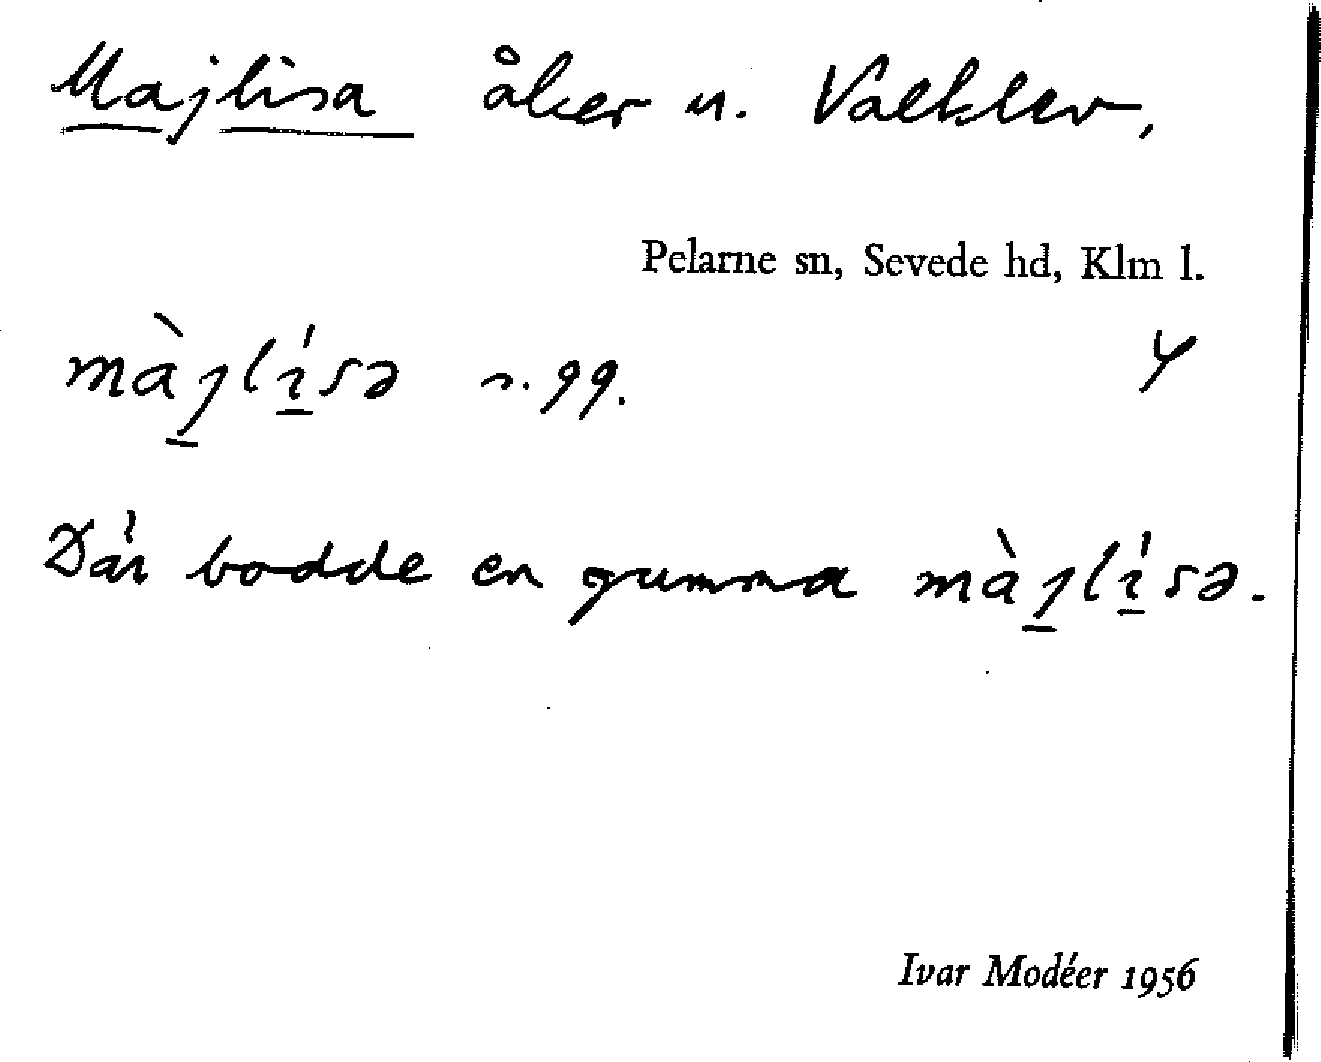 Majlisa åker u. Valklev,
Pelarne sn, Sevede hd, Klm l.
màjlísə s. gg. Y
Där bodde en gumma màjlísə.
Ivar Modéer 1956